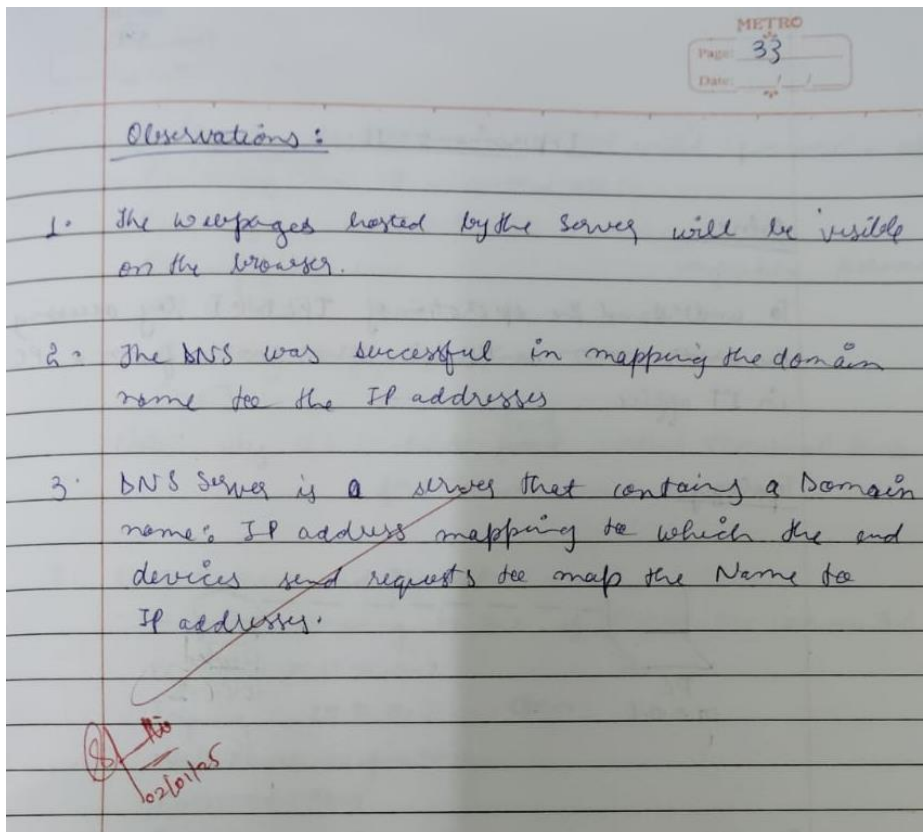 METRO
Page: 33
Date: __/__/__
Observations :
1. The webpages hosted by the Server will be visible
on the browser.
2. The DNS was successful in mapping the domain
name to the IP addresses
3. DNS Server is a server that contains a Domain
name: IP address mapping to which the end
devices send requests to map the Name to
IP addresses.
8
10
02/01/25